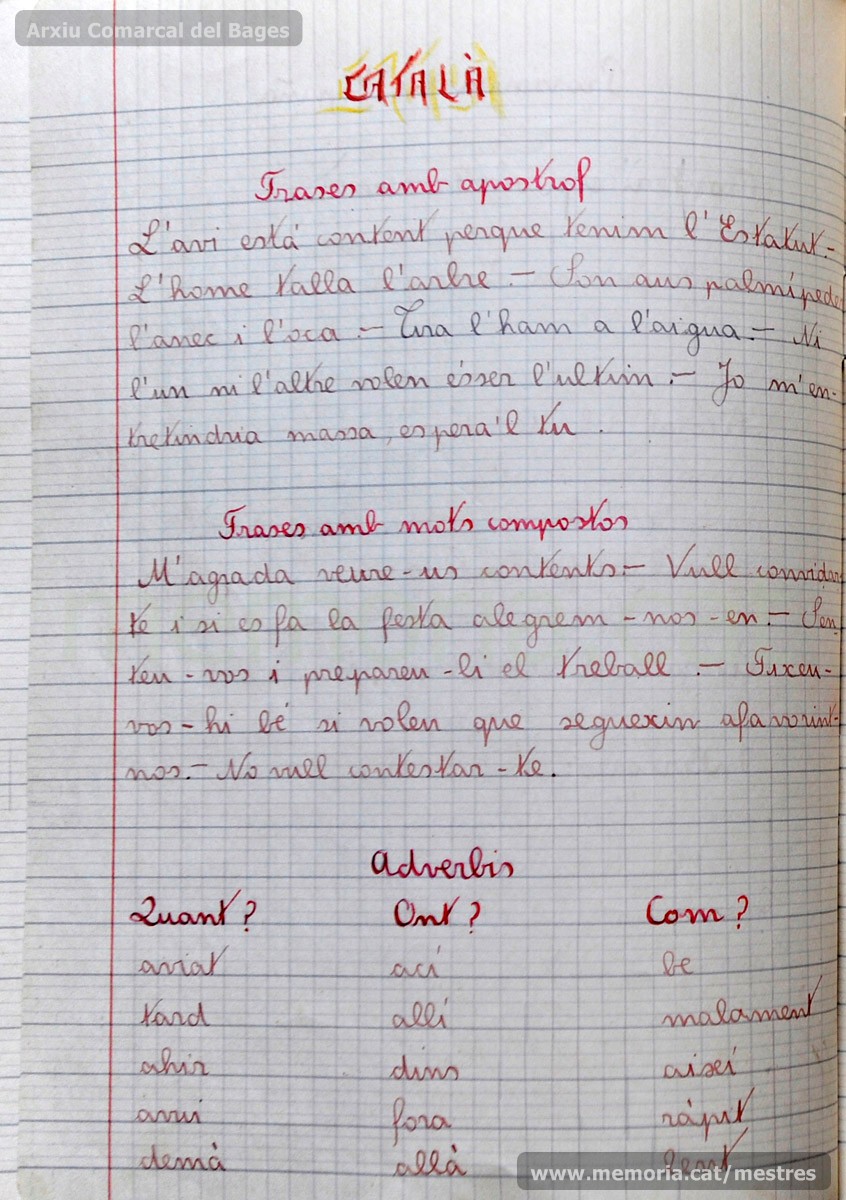 Arxiu Comarcal del Bages
CATALÀ
Frases amb apostrof
L'avi está content perque tenim l'Estatut.-
L'home talla l'arbre.- Son aus palmípedes
l'anec i l'oca.- Tira l'ham a l'aigua.- Ni
l'un ni l'altre volen ésser l'ultim.- Jo m'en-
tretindria massa, espera'l tu.
Frases amb mots compostos
M'agrada veure-us contents.- Vull convidar-
te i si es fa la festa alegrem-nos-en.- Sen-
teu-vos i prepareu-li el treball.- Fixeu-
vos-hi bé si volen que seguexin afavorint-
nos.- No vull contestar-te.
Adverbis
Quant? Ont? Com?
aviat ací be
tard allí malament
ahir dins aisei
avui fora ràpit
demà allà lent
www.memoria.cat/mestres